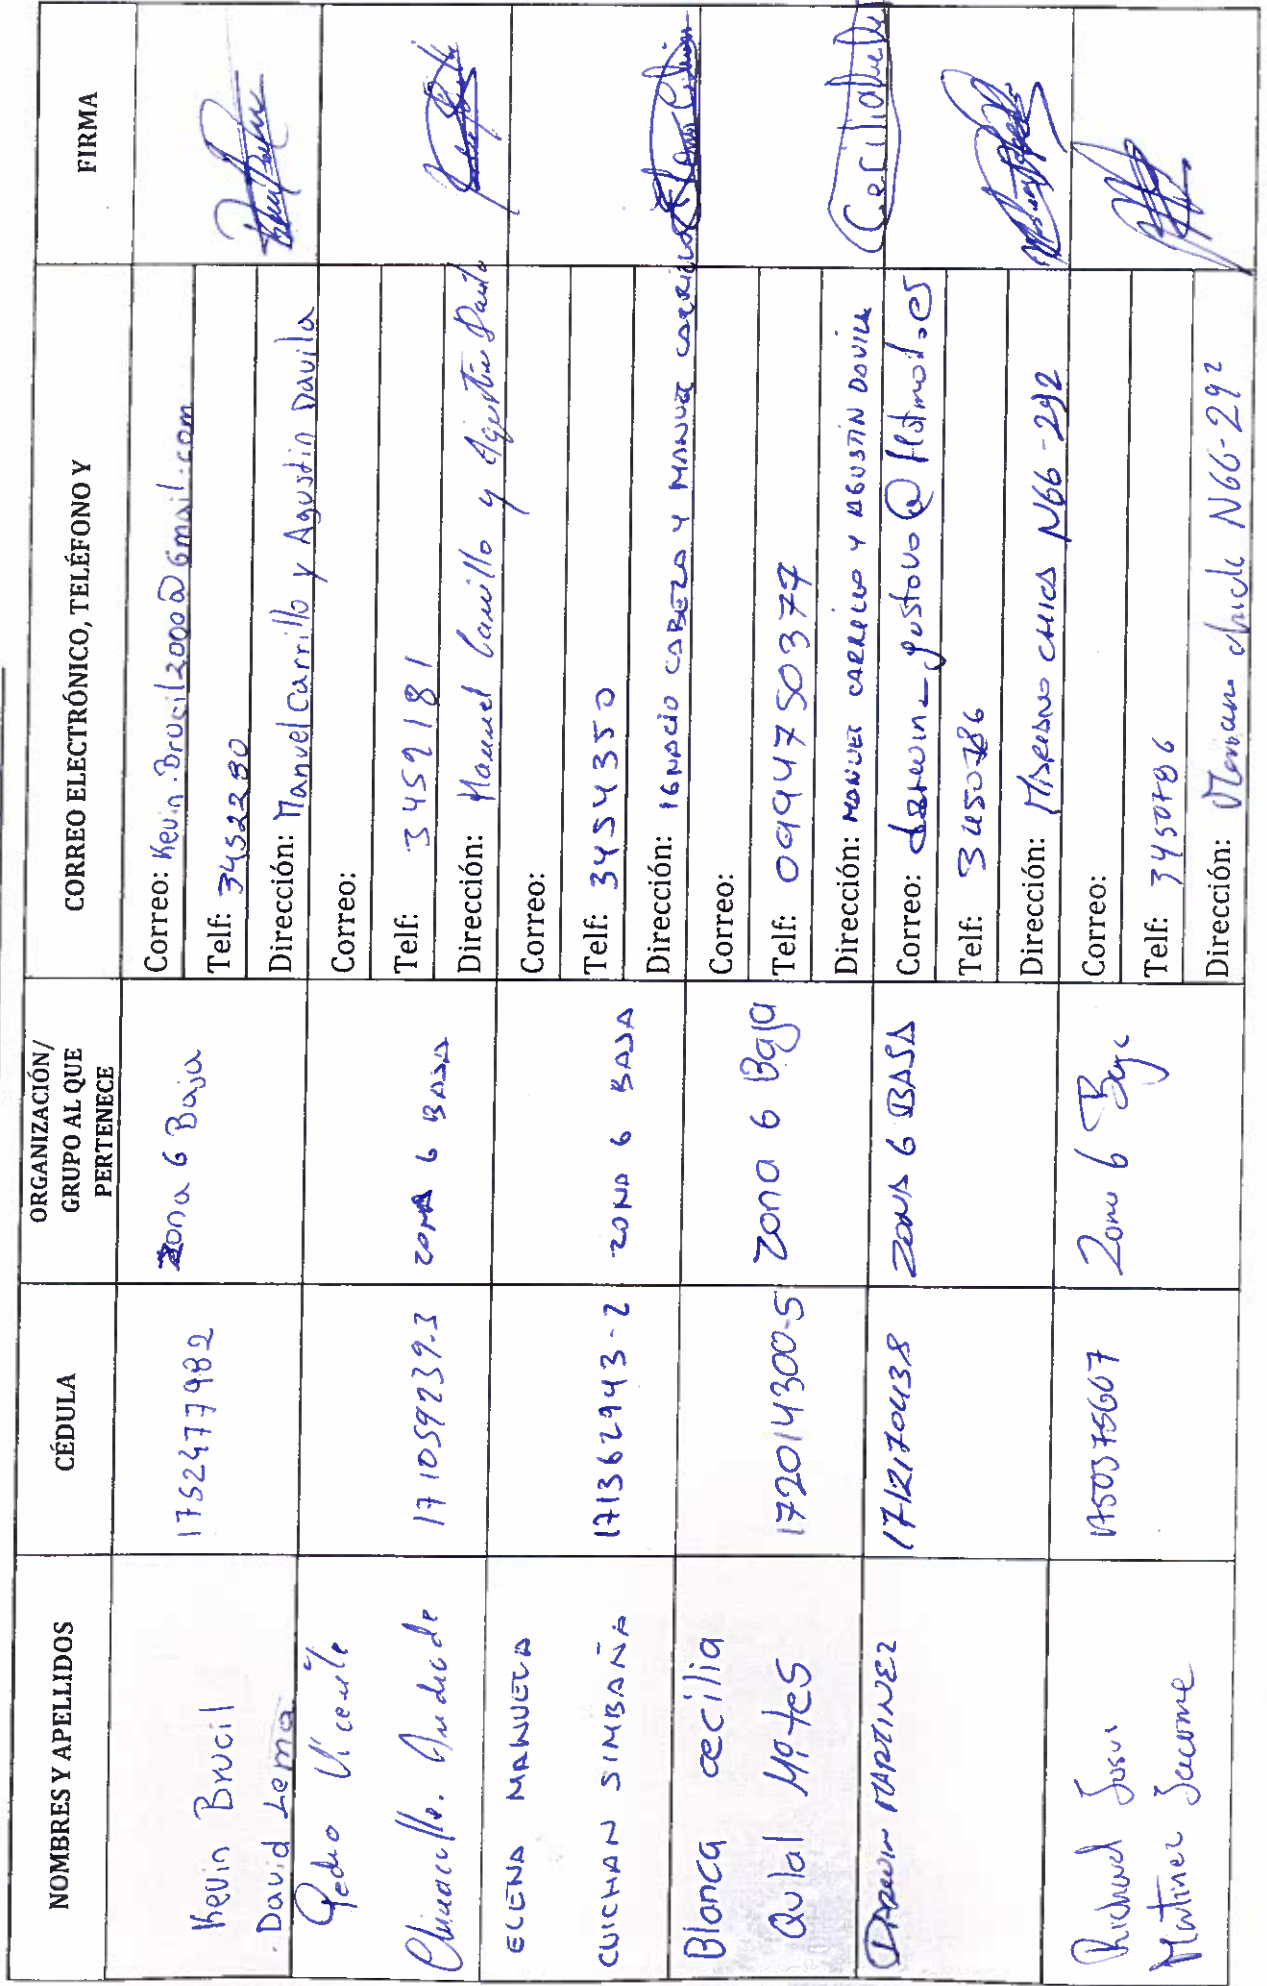 NOMBRES Y APELLIDOS
CÉDULA
ORGANIZACIÓN/
GRUPO AL QUE
PERTENECE
CORREO ELECTRÓNICO, TELÉFONO Y
FIRMA
Kevin Brucil
David Lema
1752477982
Zona 6 Baja
Correo: Kevin.Brucil2000@Gmail.com
Telf: 3452280
Dirección: Manuel Carrillo y Agustin Davila
Pedro Vicente
Andrade
171059239-3
ZONA 6 BAJA
Correo:
Telf: 3459181
Dirección: Manuel Carrillo y Agustin
ELENA MANUELA
CUICHAN SIMBAÑA
171362943-2
ZONA 6 BAJA
Correo:
Telf: 3454350
Dirección: IGNACIO CABEZA Y MANUEL
Blanca cecilia
172014300-5
Zona 6 Baja
Correo:
Telf: 0994750377
Dirección: MANUEL CARRILLO Y AGUSTIN DAVILA
Cecilia
DARWIN MARTINEZ
1712170438
ZONA 6 BAJA
Correo: darwin_gustavo@Hotmail.es
Telf: 3450786
Dirección: MARIANO CHICA N66-292
Richard Josue
Martinez Jacome
1750375607
Zona 6 Baja
Correo:
Telf: 3450786
Dirección: Mariano chica N66-292